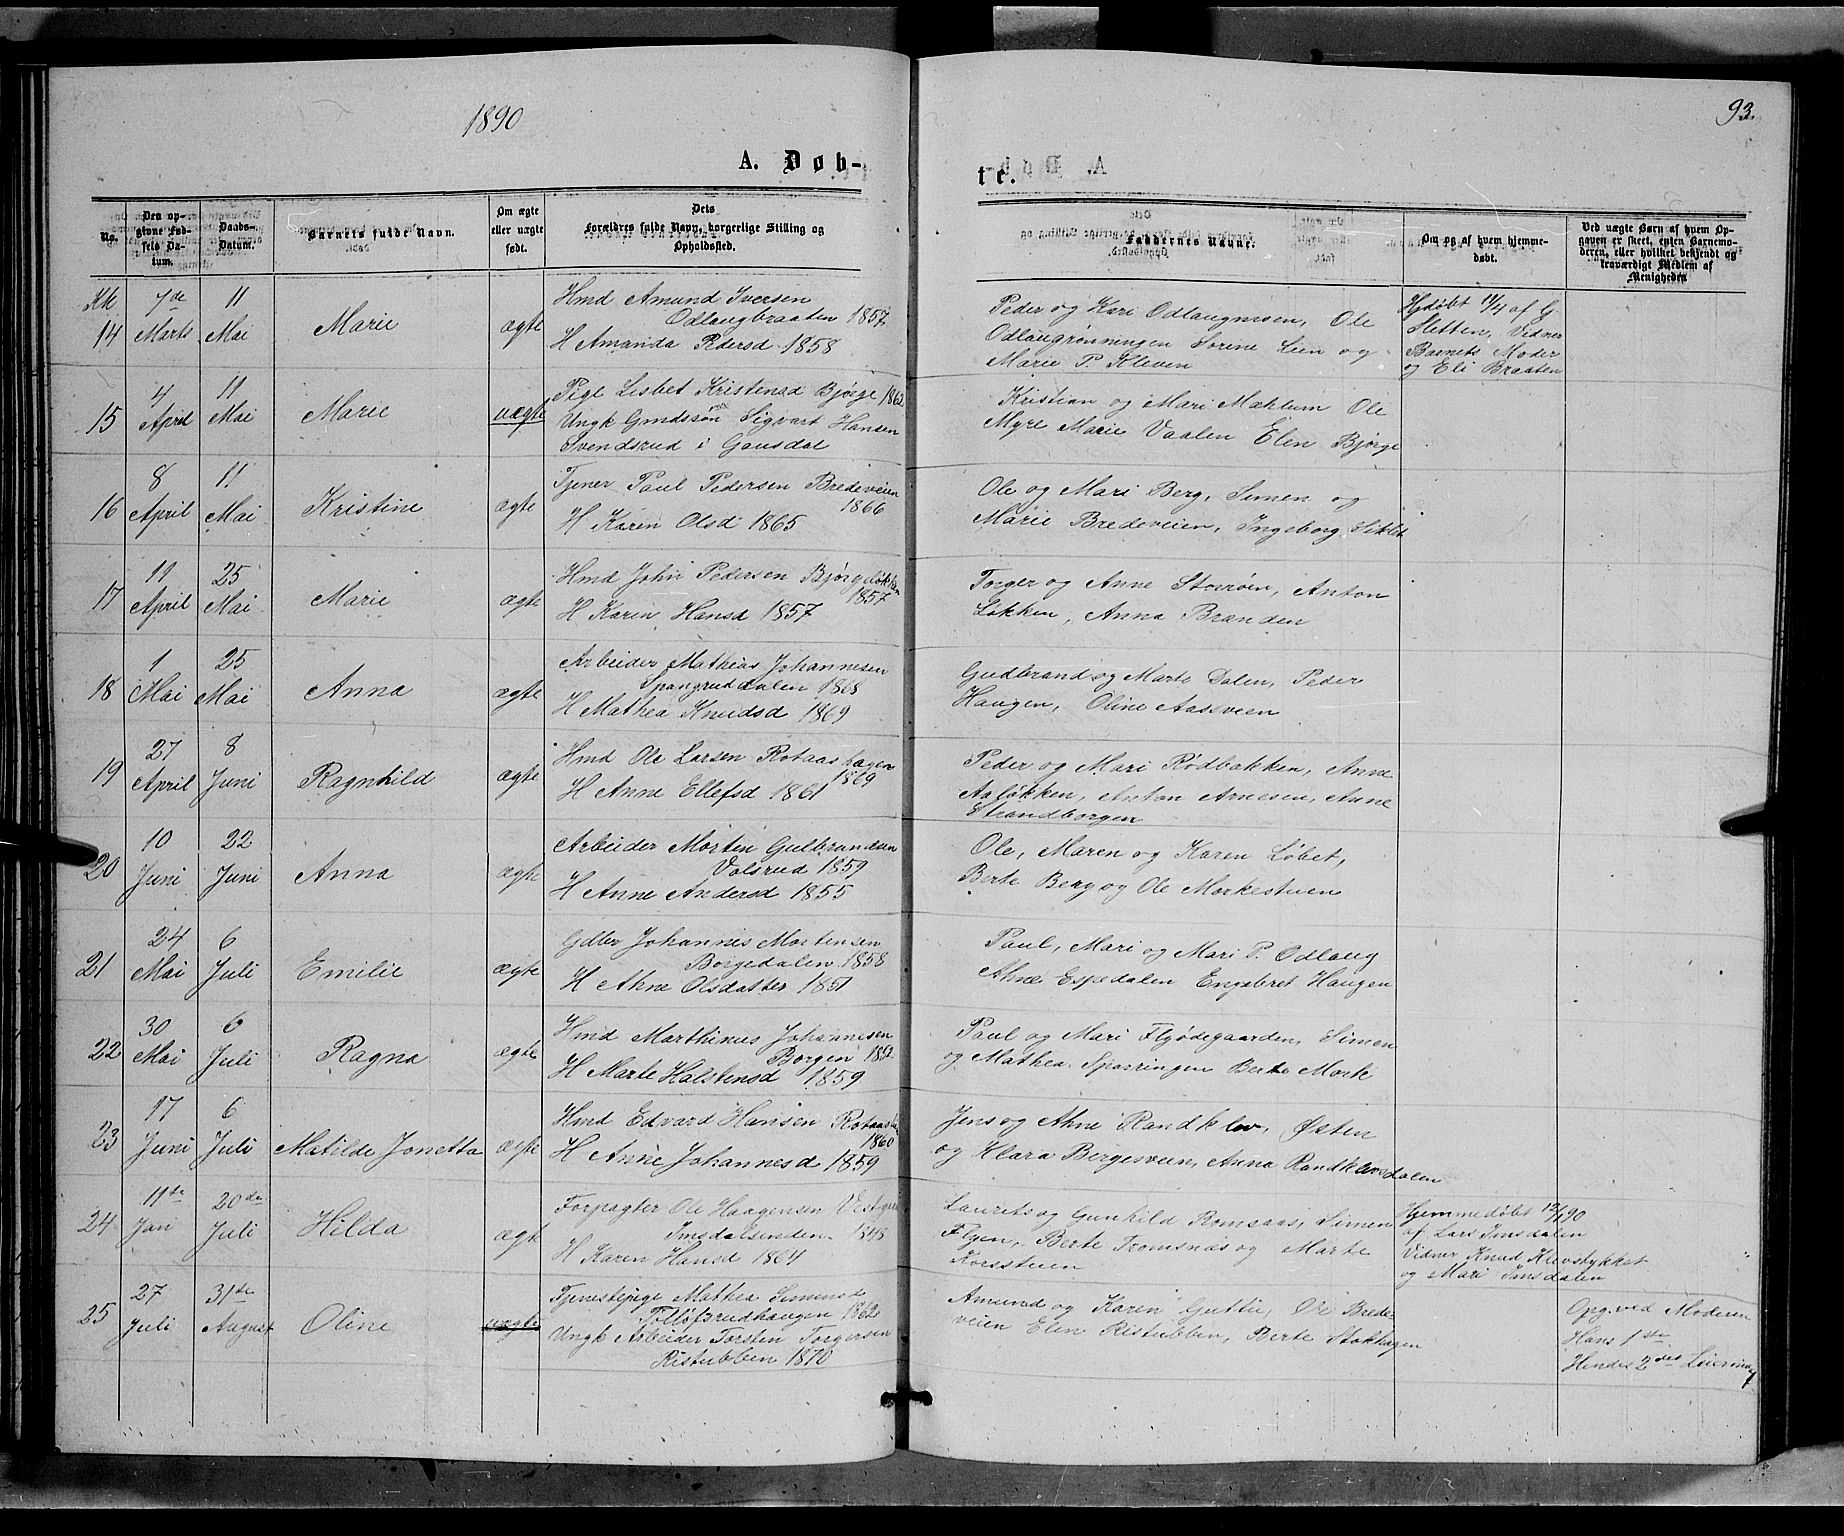 1890
93.
A. Døb-
te.
No.
Den op-
givne Fød-
sels Da-
tum.
Daabs-
Datum.
Barnets fulde Navn.
Om ægte
eller uægte
født.
Dets
Forældres fulde Navn, borgerlige Stilling og
Opholdssted.
Faddernes Navne.
Om og af hvem hjemme-
døbt.
Ved uægte Børn af hvem Op-
gaven er skeet, enten Barnemo-
deren, eller hvilket bekjendt og
troværdigt Medlem af
Menigheden
14
7de
Marts
11
Mai
Marie
ægte
Hmd Amund Iversen
Odlaugbraaten 1857
H Amanda Pedersd 1858
Peder og Kari Odlaugmoen, Ole
Odlaugrønningen Sorine Lien og
Marie P. Kleven
Hjdøbt 11/4 af G.
Sletten, Vidner
Barnets Moder
og Eli Braaten
15
4
April
11
Mai
Marie
uægte
Pige Lisbet Kristensd Bjørge 1862
Ungk Gmdssøn Sigvart Hansen
Svendsrud i Gausdal
Kristian og Mari Mæhlum Ole
Myre Marie Vaalen Elen Bjørge
16
8
April
11
Mai
Kristine
ægte
Tjener Paul Pedersen Bredeveien
1866
H Karen Olsd 1865
Ole og Mari Berg, Simen og
Marie Bredeveien, Ingeborg Siklet
17
11
April
25
Mai
Marie
ægte
Hmd John Pedersen Bjørgeløkken
1857
H Karen Hansd 1857
Torger og Anne Storøen, Anton
Løkken, Anna Brænden
18
1
Mai
25
Mai
Anna
ægte
Arbeider Mathias Johannesen
Spangruddalen 1868
H Mathea Knudsd 1869
Gudbrand og Marte Dalen, Peder
Haugen, Oline Aasveen
19
27
April
8
Juni
Ragnhild
ægte
Hmd Ole Larsen Rotaashagen
1869
H Anne Ellefsd 1861
Peder og Mari Rødbakken, Anne
Aaløkken, Anton Arnesen, Anne
Strandborgen
20
10
Juni
22
Juni
Anna
ægte
Arbeider Morten Gulbrandsen
Volsrud 1859
H Anne Andersd 1855
Ole, Maren og Karen Løbet,
Berte Berg og Ole Morkestuen
21
24
Mai
6
Juli
Emilie
ægte
Gdbr Johannes Mortensen
Borgedalen 1858
H Ahne Olsdatter 1851
Paul, Mari og Mari P. Odlaug
Ahne Espedalen Engebret Haugen
22
30
Mai
6
Juli
Ragna
ægte
Hmd Marthinus Johannesen
Borgen
H Marte Halstensd 1859
Paul og Mari Flyødegaarden, Simen
og Mathea Sparringen Berte Mork
23
17
Juni
6
Juli
Matilde Jonetta
ægte
Hmd Edvard Hansen
1860
H Anne Johannesd 1859
Jens og Ahne Randklev, Østen
og Klara Bergesveen, Anna Randklevsdalen
24
11te
Jan
20de
Juli
Hilda
ægt
Forpagter Ole Haagensen
Imsdalsenden 1848
H Karen Hansd 1864
Laurets og Gunhild Romsaas, Simen
Flyen, Berte Tromsnæs og Marte
Korsstuen
Hjemmedøbt 12/1 90
af Lars Imsdalen
Vidner Knud Klevstykket
og Mari Imsdalen
25
27
Juli
31te
August
Oline
uægte
Tjenestepige Mathea Simensd
Tolløfsrudhaugen 1862
Ungk Arbeider Torsten Torgersen
Ristubben 1870
Amund og Karen Guttu, Ole Brede-
veien Elen Ristubben, Berte Stokhagen
Opg. ved Moderen
Hans 1ste
Hendes 2det Leiermaal